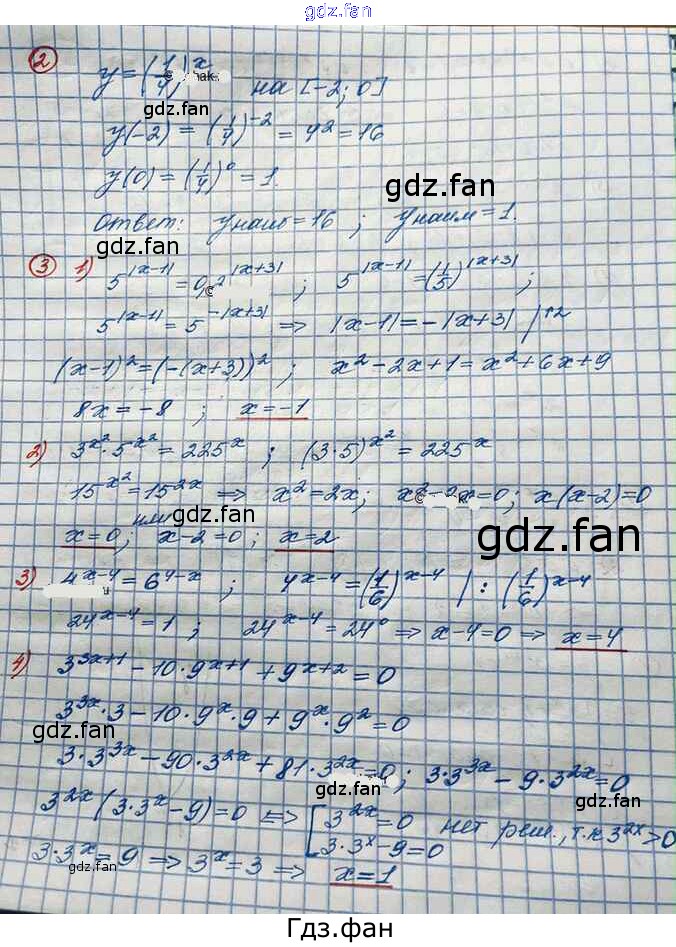 gdz.fan
② y = (1/4)^x на [-2; 0]
gdz.fan
y(-2) = (1/4)^-2 = 4^2 = 16
y(0) = (1/4)^0 = 1.
gdz.fan
ответ: y наиб = 16 ; y наим = 1.
gdz.fan
gdz.fan
③ 1) 5^|x-1| = 0,2^|x+3| ; 5^|x-1| = (1/5)^|x+3| ;
5^|x-1| = 5^-|x+3| => |x-1| = -|x+3| |↑2
(x-1)^2 = (-(x+3))^2 ; x^2 - 2x + 1 = x^2 + 6x + 9
8x = -8 ; x = -1
2) 3^x^2 · 5^x^2 = 225^x ; (3·5)^x^2 = 225^x
15^x^2 = 15^2x => x^2 = 2x ; x^2 - 2x = 0 ; x(x-2) = 0
gdz.fan
x = 0 ; или x - 2 = 0 ; x = 2
gdz.fan
3) 4^x-4 = 6^4-x ; 4^x-4 = (1/6)^x-4 | : (1/6)^x-4
24^x-4 = 1 ; 24^x-4 = 24^0 => x-4 = 0 => x = 4
4) 3^3x+1 - 10·9^x+1 + 9^x+2 = 0
3^3x · 3 - 10·9^x · 9 + 9^x · 9^2 = 0
gdz.fan
gdz.fan
3·3^3x - 90·3^2x + 81·3^2x = 0 ; 3·3^3x - 9·3^2x = 0
gdz.fan
3^2x (3·3^x - 9) = 0 <=> [ 3^2x = 0 нет реш., т.к 3^2x > 0
3·3^x - 9 = 0
3·3^x = 9 => 3^x = 3 => x = 1
gdz.fan
Гдз.фан